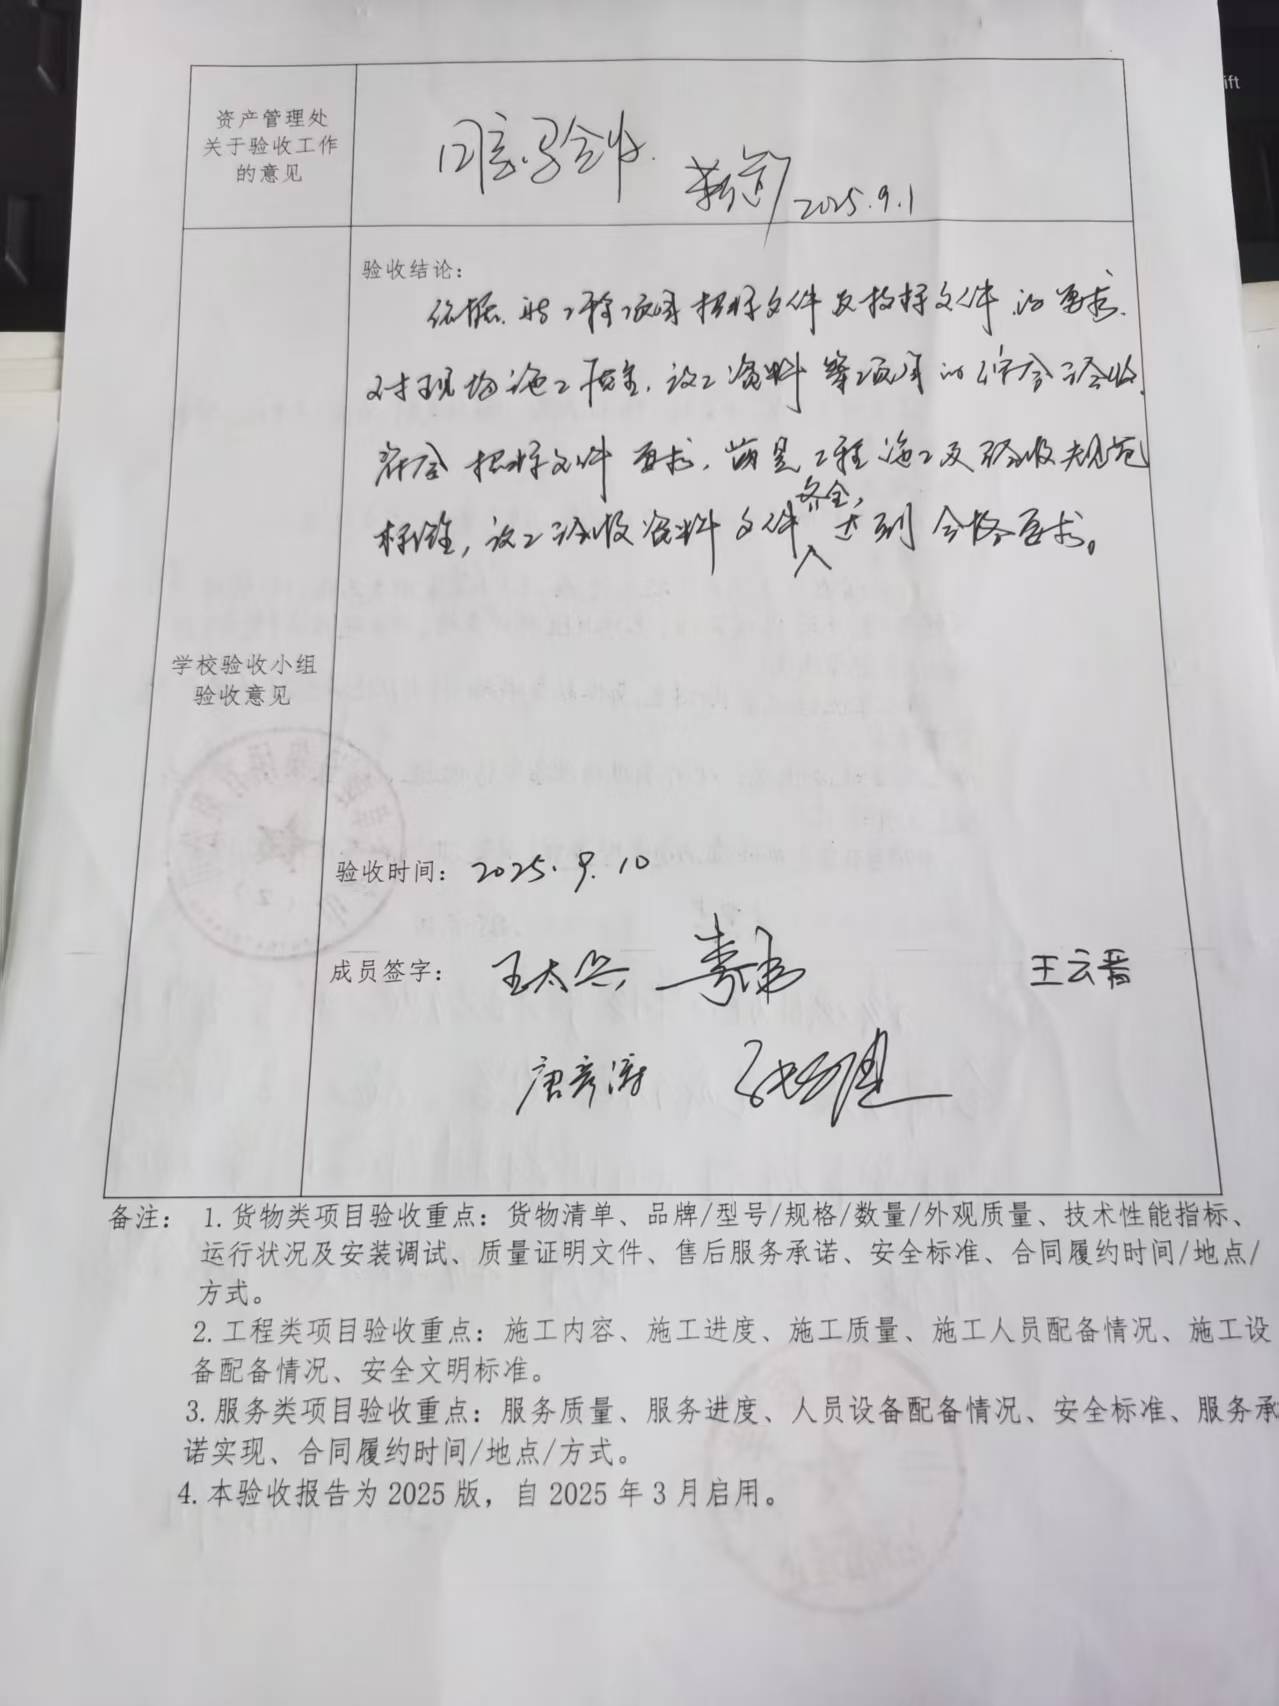 资产管理处
关于验收工作
的意见
同意验收.
2025.9.1
验收结论：
依据 工程项目招标文件及投标文件的要求.
对现场施工 竣工资料等项目的综合验收.
符合招标文件要求，满足工程施工及验收规范
标准，竣工验收资料文件齐全，达到合格要求。
学校验收小组
验收意见
验收时间：2025.9.10
成员签字：王太兴 李伟 王云晋
唐彦涛
备注：1.货物类项目验收重点：货物清单、品牌/型号/规格/数量/外观质量、技术性能指标、
运行状况及安装调试、质量证明文件、售后服务承诺、安全标准、合同履约时间/地点/
方式。
2.工程类项目验收重点：施工内容、施工进度、施工质量、施工人员配备情况、施工设
备配备情况、安全文明标准。
3.服务类项目验收重点：服务质量、服务进度、人员设备配备情况、安全标准、服务承
诺实现、合同履约时间/地点/方式。
4.本验收报告为2025版，自2025年3月启用。